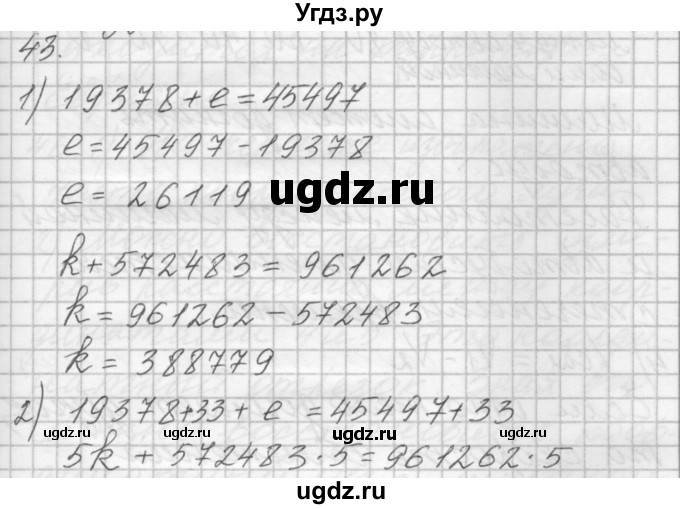 Угдз.ру
43.
1) 19378 + e = 45497
e = 45497 - 19378
e = 26119
ugdz.ru
k + 572483 = 961262
k = 961262 - 572483
k = 388779
2) 19378 + 33 + e = 45497 + 33
ugdz.ru ugdz.ru ugdz.ru
5k + 572483 · 5 = 961262 · 5
ugdz.ru